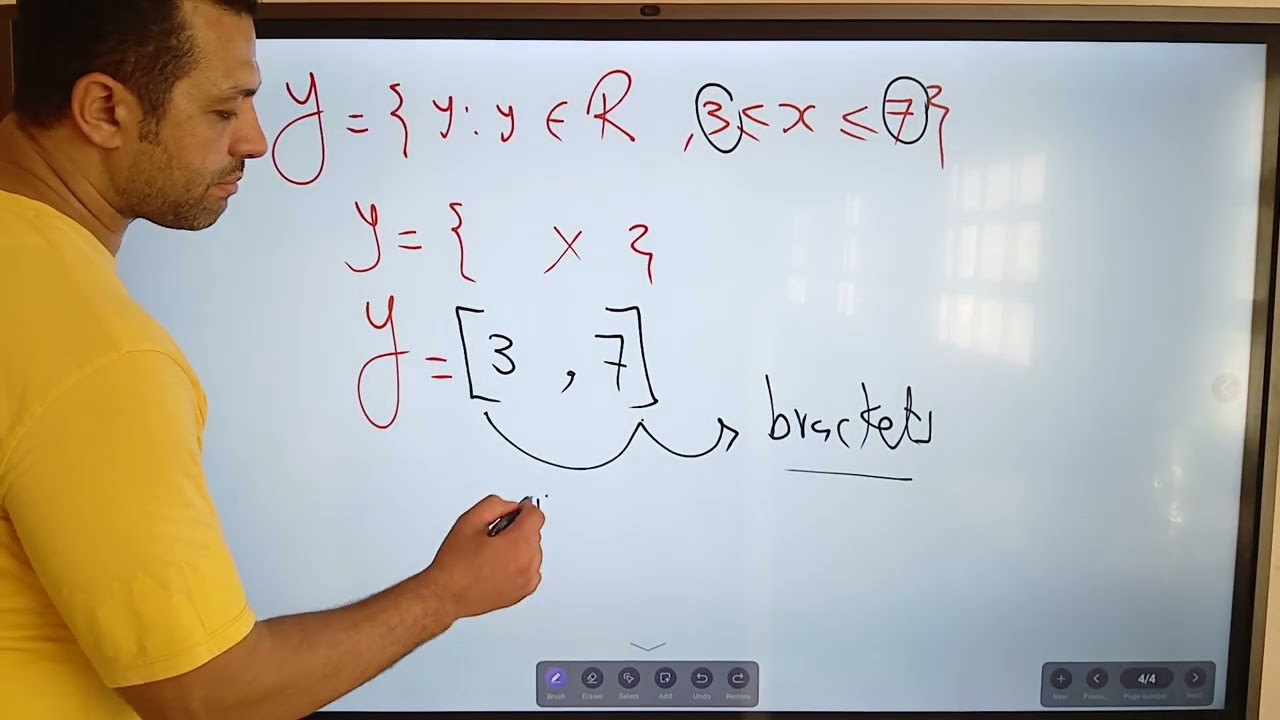 y = { y : y ∈ R , 3 ≤ x ≤ 7 }
y = { x }
y = [3 , 7]
brackets
Brush Eraser Select Add Undo Restore
New Previous 4/4 Page number Next